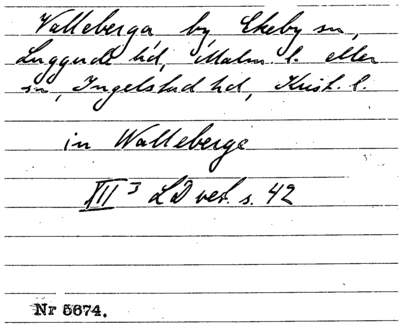 Valleberga, by, Ekeby sn,
Luggude hd, Malm. l. eller
sn, Ingelstad hd, Krist. l.
in Walleberge
XII 3 LD vet. s. 42
Nr 5674.